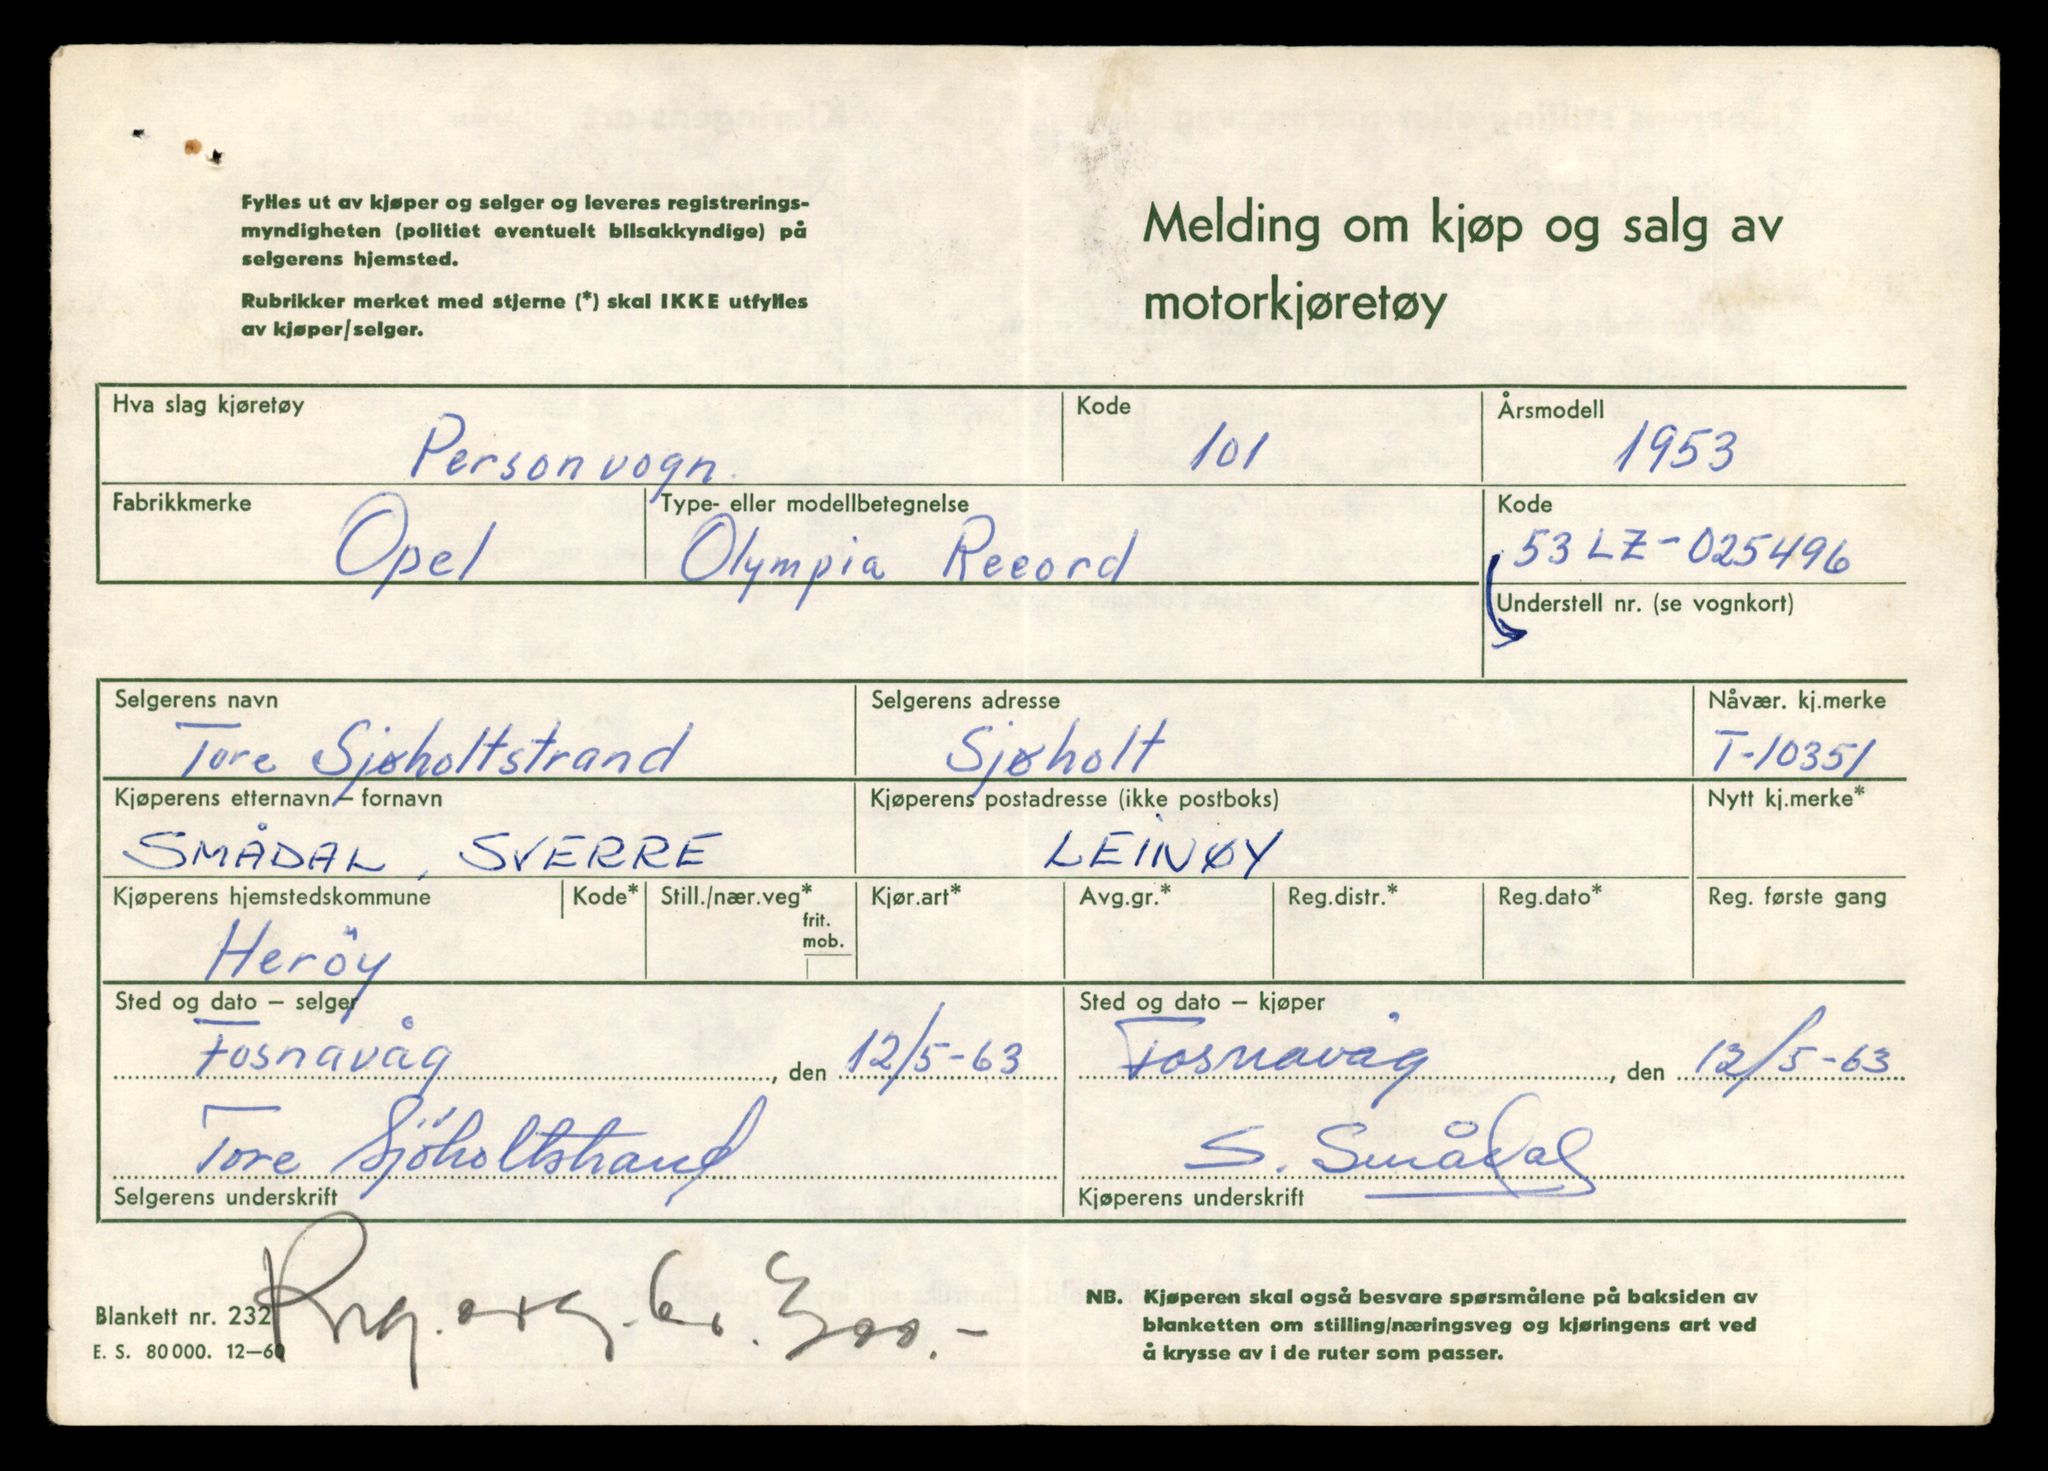 Fylles ut av kjøper og selger og leveres registrerings-
myndigheten (politiet eventuelt bilsakkyndige) på
selgerens hjemsted.
Rubrikker merket med stjerne (*) skal IKKE utfylles
av kjøper/selger.
Melding om kjøp og salg av
motorkjøretøy
Hva slag kjøretøy
Personvogn.
Kode
101
Årsmodell
1953
Fabrikkmerke
Opel
Type- eller modellbetegnelse
Olympia Record
Kode
53LZ-025496
Understell nr. (se vognkort)
Selgerens navn
Tore Sjøholtstrand
Selgerens adresse
Sjøholt
Nåvær. kj.merke
T-10351
Kjøperens etternavn – fornavn
SMÅDAL, SVERRE
Kjøperens postadresse (ikke postboks)
LEINØY
Nytt kj.merke*
Kjøperens hjemstedskommune
Heröy
Kode*
Still./nær.veg*
frit.
mob.
Kjør.art*
Avg.gr.*
Reg.distr.*
Reg.dato*
Reg. første gang
Sted og dato – selger
Fosnavåg, den 12/5-63
Tore Sjöholtstrand
Selgerens underskrift
Sted og dato – kjøper
Fosnavåg, den 12/5-63
S. Smådal
Kjøperens underskrift
Blankett nr. 232
E. S. 80 000. 12–60
NB. Kjøperen skal også besvare spørsmålene på baksiden av
blanketten om stilling/næringsveg og kjøringens art ved
å krysse av i de ruter som passer.